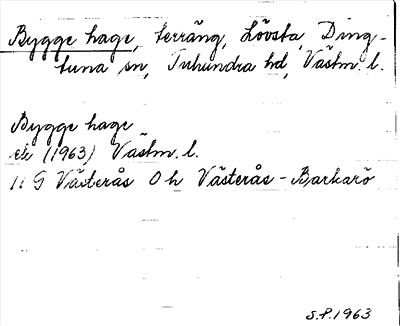 Bygge hage, terräng, Lövsta, Ding-
tuna sn, Tuhundra hd, Västm. l.
Bygge hage
ek (1963) Västm. l.
11 G Västerås 0 h Västerås-Barkarö
S.P. 1963